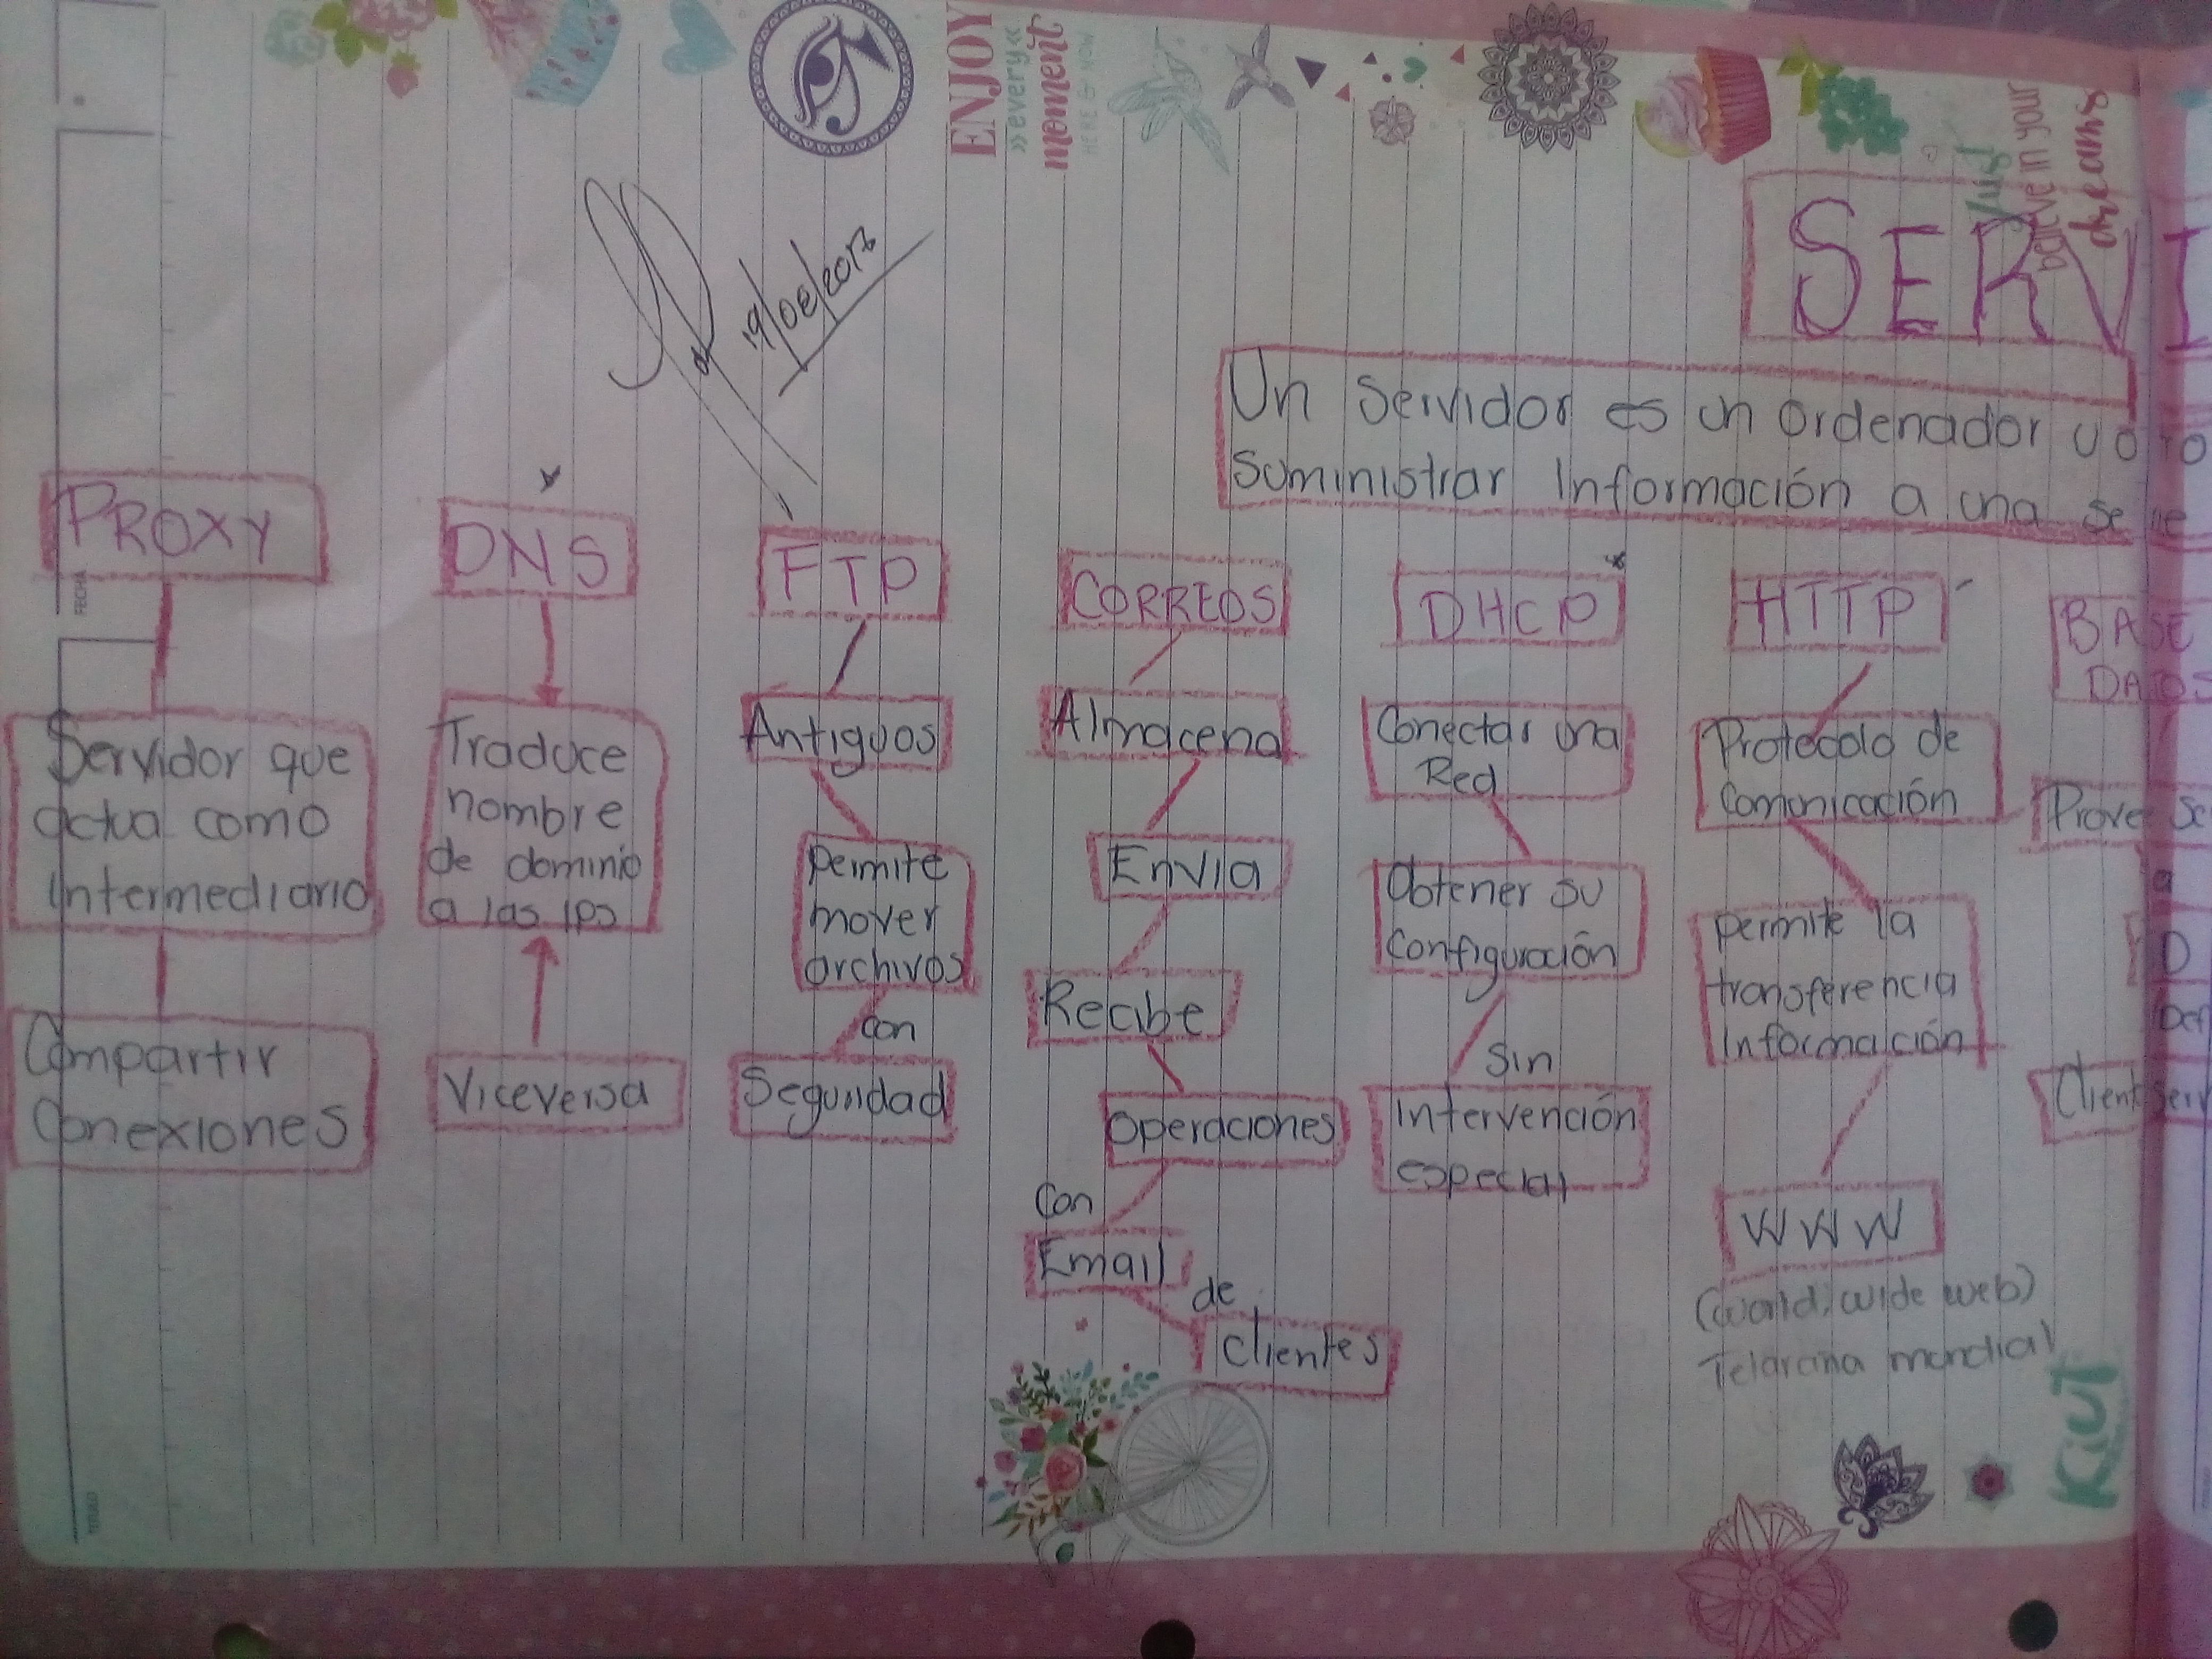 ENJOY
»every«
moment
HERE & NOW
Just
believe in your
dreams
SERVI
19/06/2018
Un Servidor es un ordenador u o
Suministrar Información a una se
PROXY
Servidor que
actua como
intermediario
Compartir
Conexiones
DNS
Traduce
nombre
de dominio
a las IPs
Viceversa
FTP
Antiguos
Permite
mover
archivos
con
Seguridad
CORREOS
Almacena
Envia
Recibe
Operaciones
Con
Email
de
Clientes
DHCP
Conectar una
Red
Obtener su
Configuración
Sin
Intervención
especial
HTTP
Protocolo de
Comunicación
permite la
transferencia
Información
WWW
(World, wide web)
Telaraña mundial
BASE
DATOS
Prove
a
Client
FECHA
Kiut